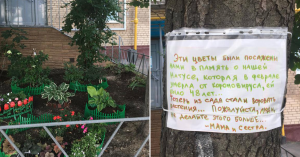 Эти цветы были посажены
нами в память о нашей
Катусе, которая в феврале
умерла от коронавируса, ей
было 48 лет.
Теперь из сада стали воровать
растения... Пожалуйста,
не делайте этого больше.
- Мама и сестра.